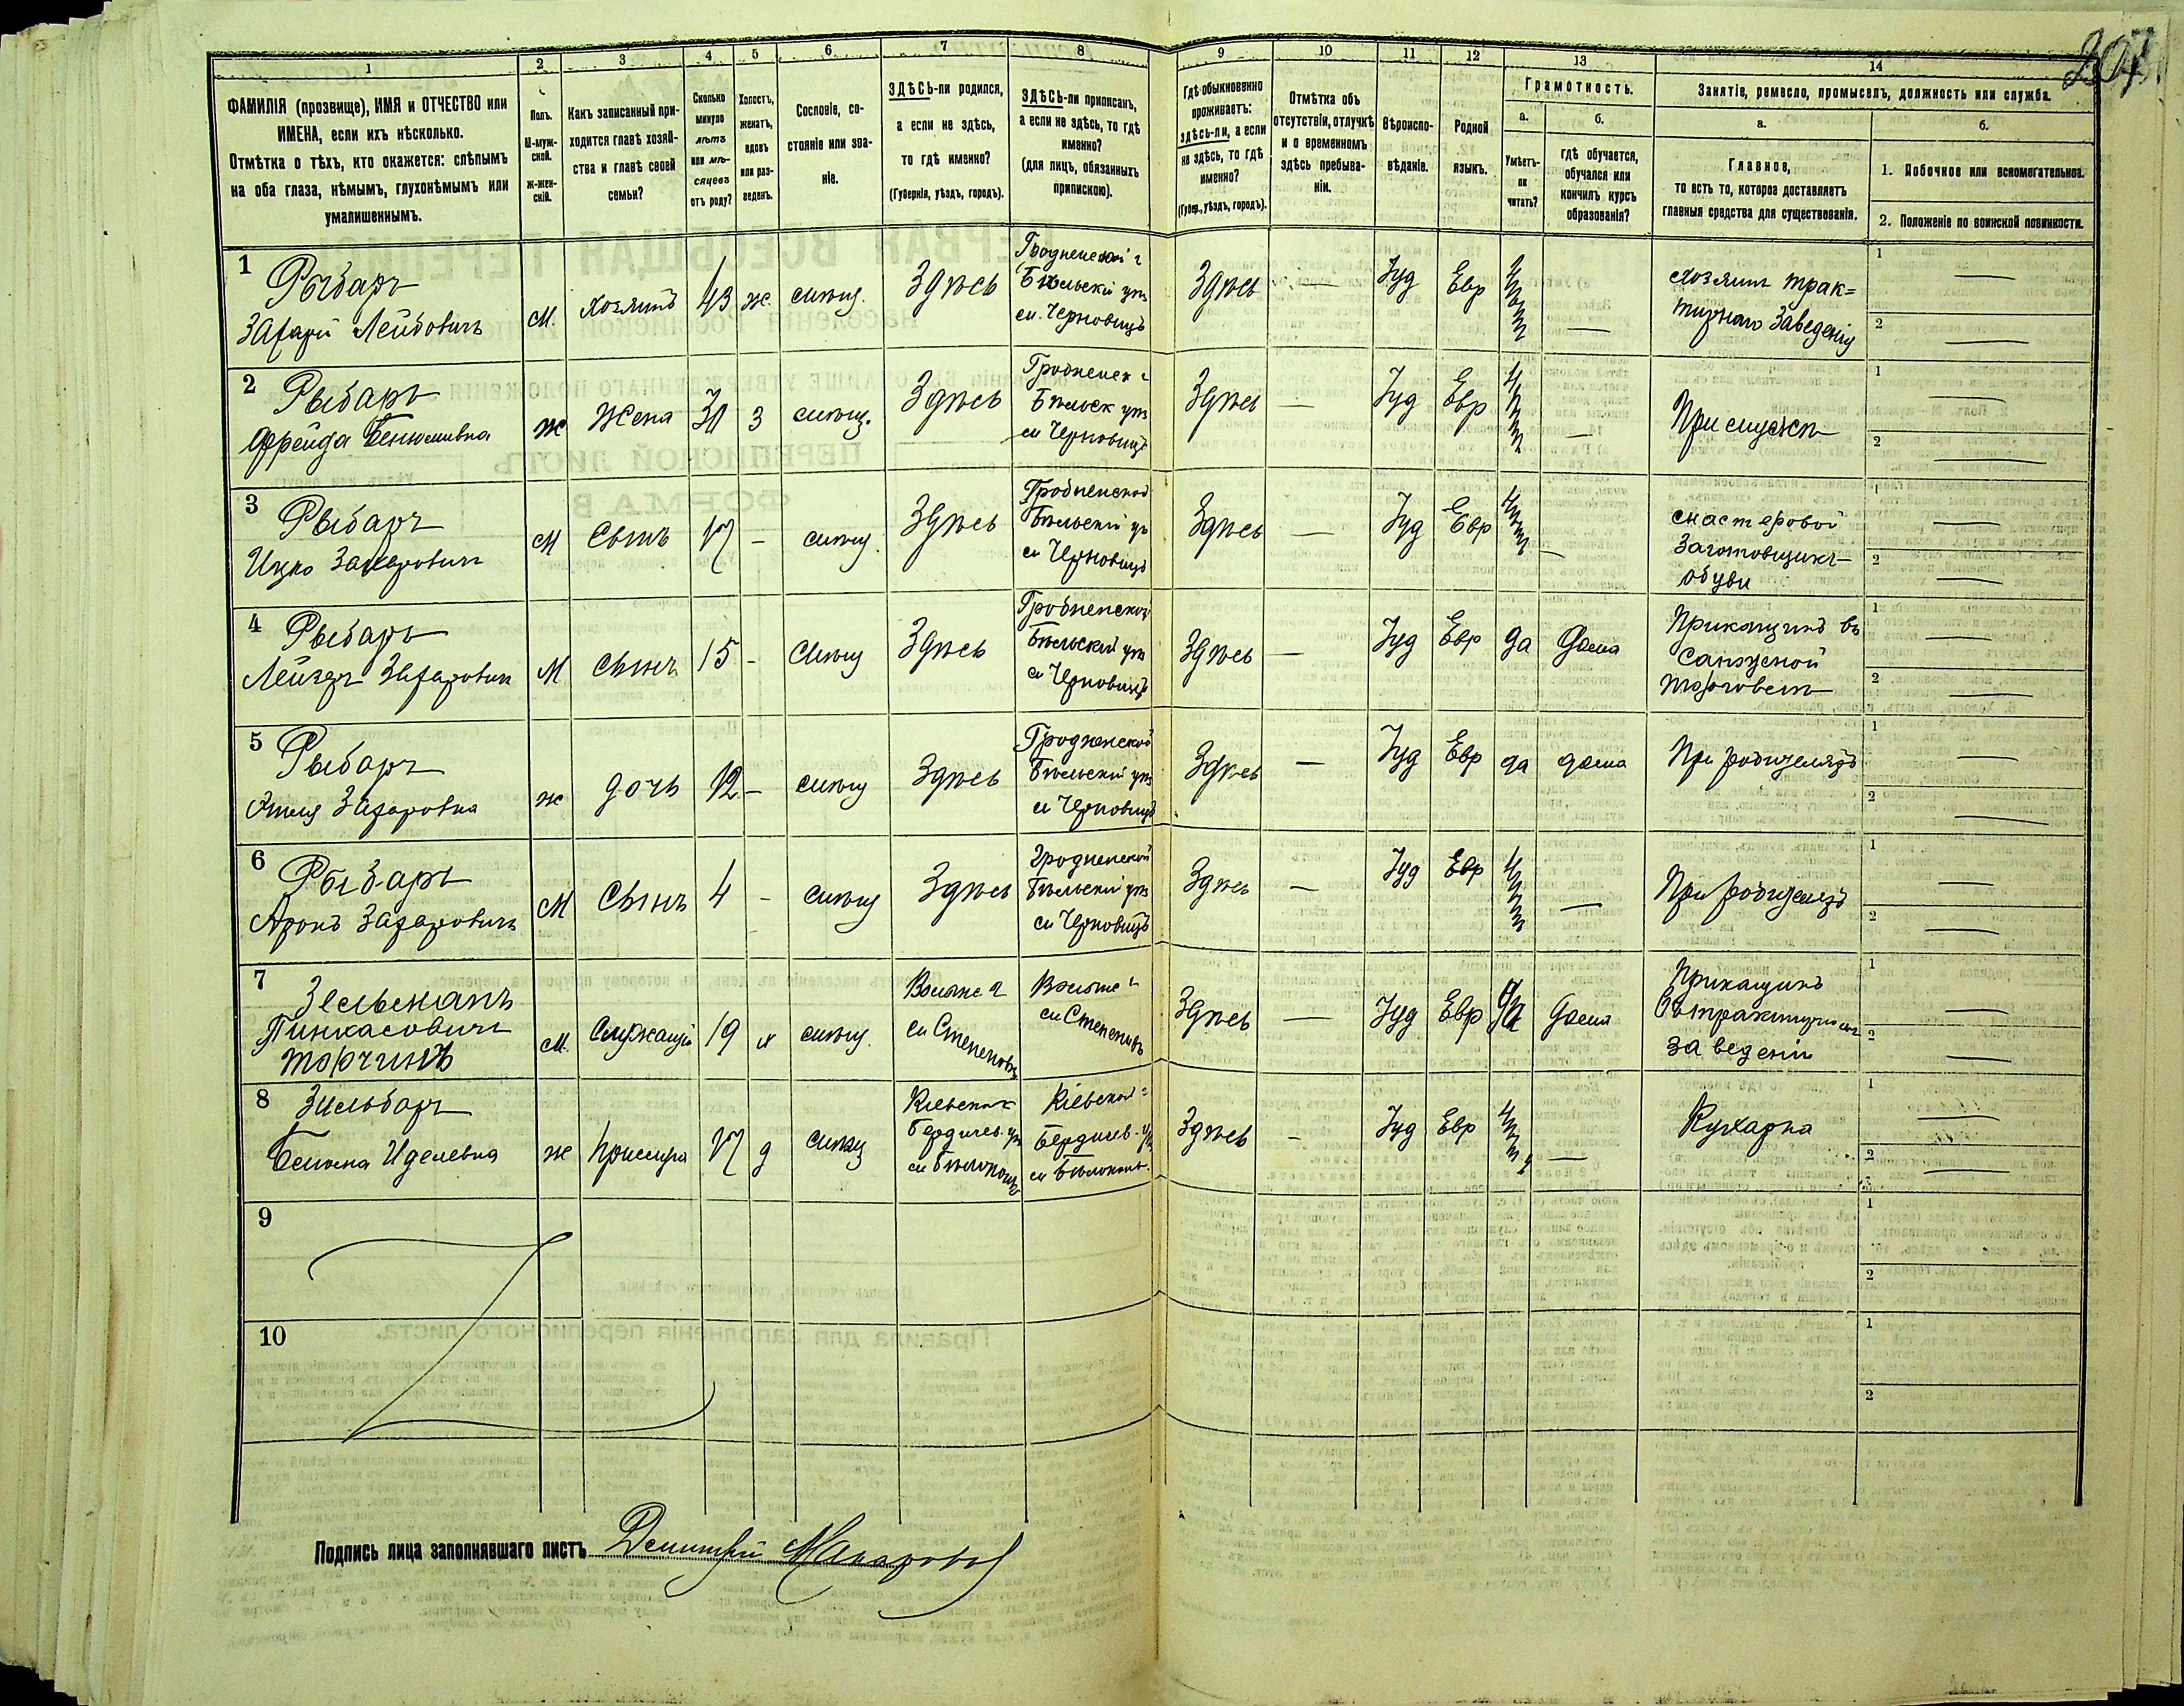 307
1 2 3 4 5 6 7 8 9 10 11 12 13 14
ФАМИЛІЯ (прозвище), ИМЯ и ОТЧЕСТВО или
ИМЕНА, если ихъ нѣсколько.
Отмѣтка о тѣхъ, кто окажется: слѣпымъ
на оба глаза, нѣмымъ, глухонѣмымъ или
умалишеннымъ.
Полъ.
М-муж-
ской.
ж-жен-
скій.
Какъ записанный при-
ходится главѣ хозяй-
ства и главѣ своей
семьи?
Сколько
минуло
лѣтъ
или мѣ-
сяцевъ
отъ роду?
Холостъ,
женатъ,
вдовъ
или раз-
веденъ.
Сословіе, со-
стояніе или зва-
ніе.
ЗДѢСЬ-ли родился,
а если не здѣсь,
то гдѣ именно?
(Губернія, уѣздъ, городъ).
ЗДѢСЬ-ли приписанъ,
а если не здѣсь, то гдѣ
именно?
(для лицъ, обязанныхъ
припискою).
Гдѣ обыкновенно
проживаетъ:
здѣсь-ли, а если
не здѣсь, то гдѣ
именно?
(Губер., уѣздъ, городъ).
Отмѣтка объ
отсутствіи, отлучкѣ
и о временномъ
здѣсь пребыва-
ніи.
Вѣроиспо-
вѣданіе.
Родной
языкъ.
Грамотность.
а.
Умѣетъ-
ли
читать?
б.
гдѣ обучается,
обучался или
кончилъ курсъ
образованія?
Занятіе, ремесло, промыселъ, должность или служба.
а.
Главное,
то есть то, которое доставляетъ
главныя средства для существованія.
б.
1. Побочное или вспомогательное.
2. Положеніе по воинской повинности.
1
Рыбаръ
Захарій Лейбовичъ
М. Хозяинъ 43 ж. мѣщ. Здѣсь
Гродненской г
Бѣльскій уѣз
м. Черновицъ
Здѣсь — Іуд Евр —
Хозяинъ трак=
тирнаго Заведенія
1 —
2 —
2
Рыбаръ
Фрейда
ж Жена 3 мѣщ. Здѣсь
Гродненск г
Бѣльск уѣз
м Черновицъ
Здѣсь — Іуд Евр —
При мужѣ
1 —
2 —
3
Рыбаръ
Ицко Захаровичъ
М Сынъ 17 — мѣщ. Здѣсь
Гродненской
Бѣльскій уѣ
м Черновицъ
Здѣсь — Іуд Евр —
мастеровой
Заготовщикъ
обуви
1 —
2 —
4
Рыбаръ
Лейзеръ Захаровичъ
М Сынъ 15 — мѣщ Здѣсь
Гродненской
Бѣльскій уѣз
м Черновицъ
Здѣсь — Іуд Евр да Дома
Прикащикъ въ
торговлѣ
1 —
2 —
5
Рыбаръ
Захаровна
ж дочь 12 — мѣщ Здѣсь
Гродненской
Бѣльскій уѣз
м Черновицъ
Здѣсь — Іуд Евр да дома
При родителяхъ
1 —
2 —
6
Рыбаръ
Аронъ Захаровичъ
М Сынъ 4 — мѣщ Здѣсь
Гродненской
Бѣльскій уѣз
м Черновицъ
Здѣсь — Іуд Евр —
При родителяхъ
1 —
2 —
7
Зельманъ
Пинкасовичъ
Торчинъ
М. Служащій 19 х мѣщ.
Волынс г
м
Волынс г
м
Здѣсь — Іуд Евр да Дома
Прикащикъ
въ трактирномъ
заведеніи
1 —
2 —
8
Зильбаръ
Иделевна
ж Прислуга 17 д мѣщ
Кіевской
Бердичев. уѣз
м
Кіевской
Бердичев. уѣз
м
Здѣсь — Іуд Евр —
Кухарка
1 —
2 —
9
1
2
10
1
2
Подпись лица заполнявшаго листъ Дмитрій Макаровъ